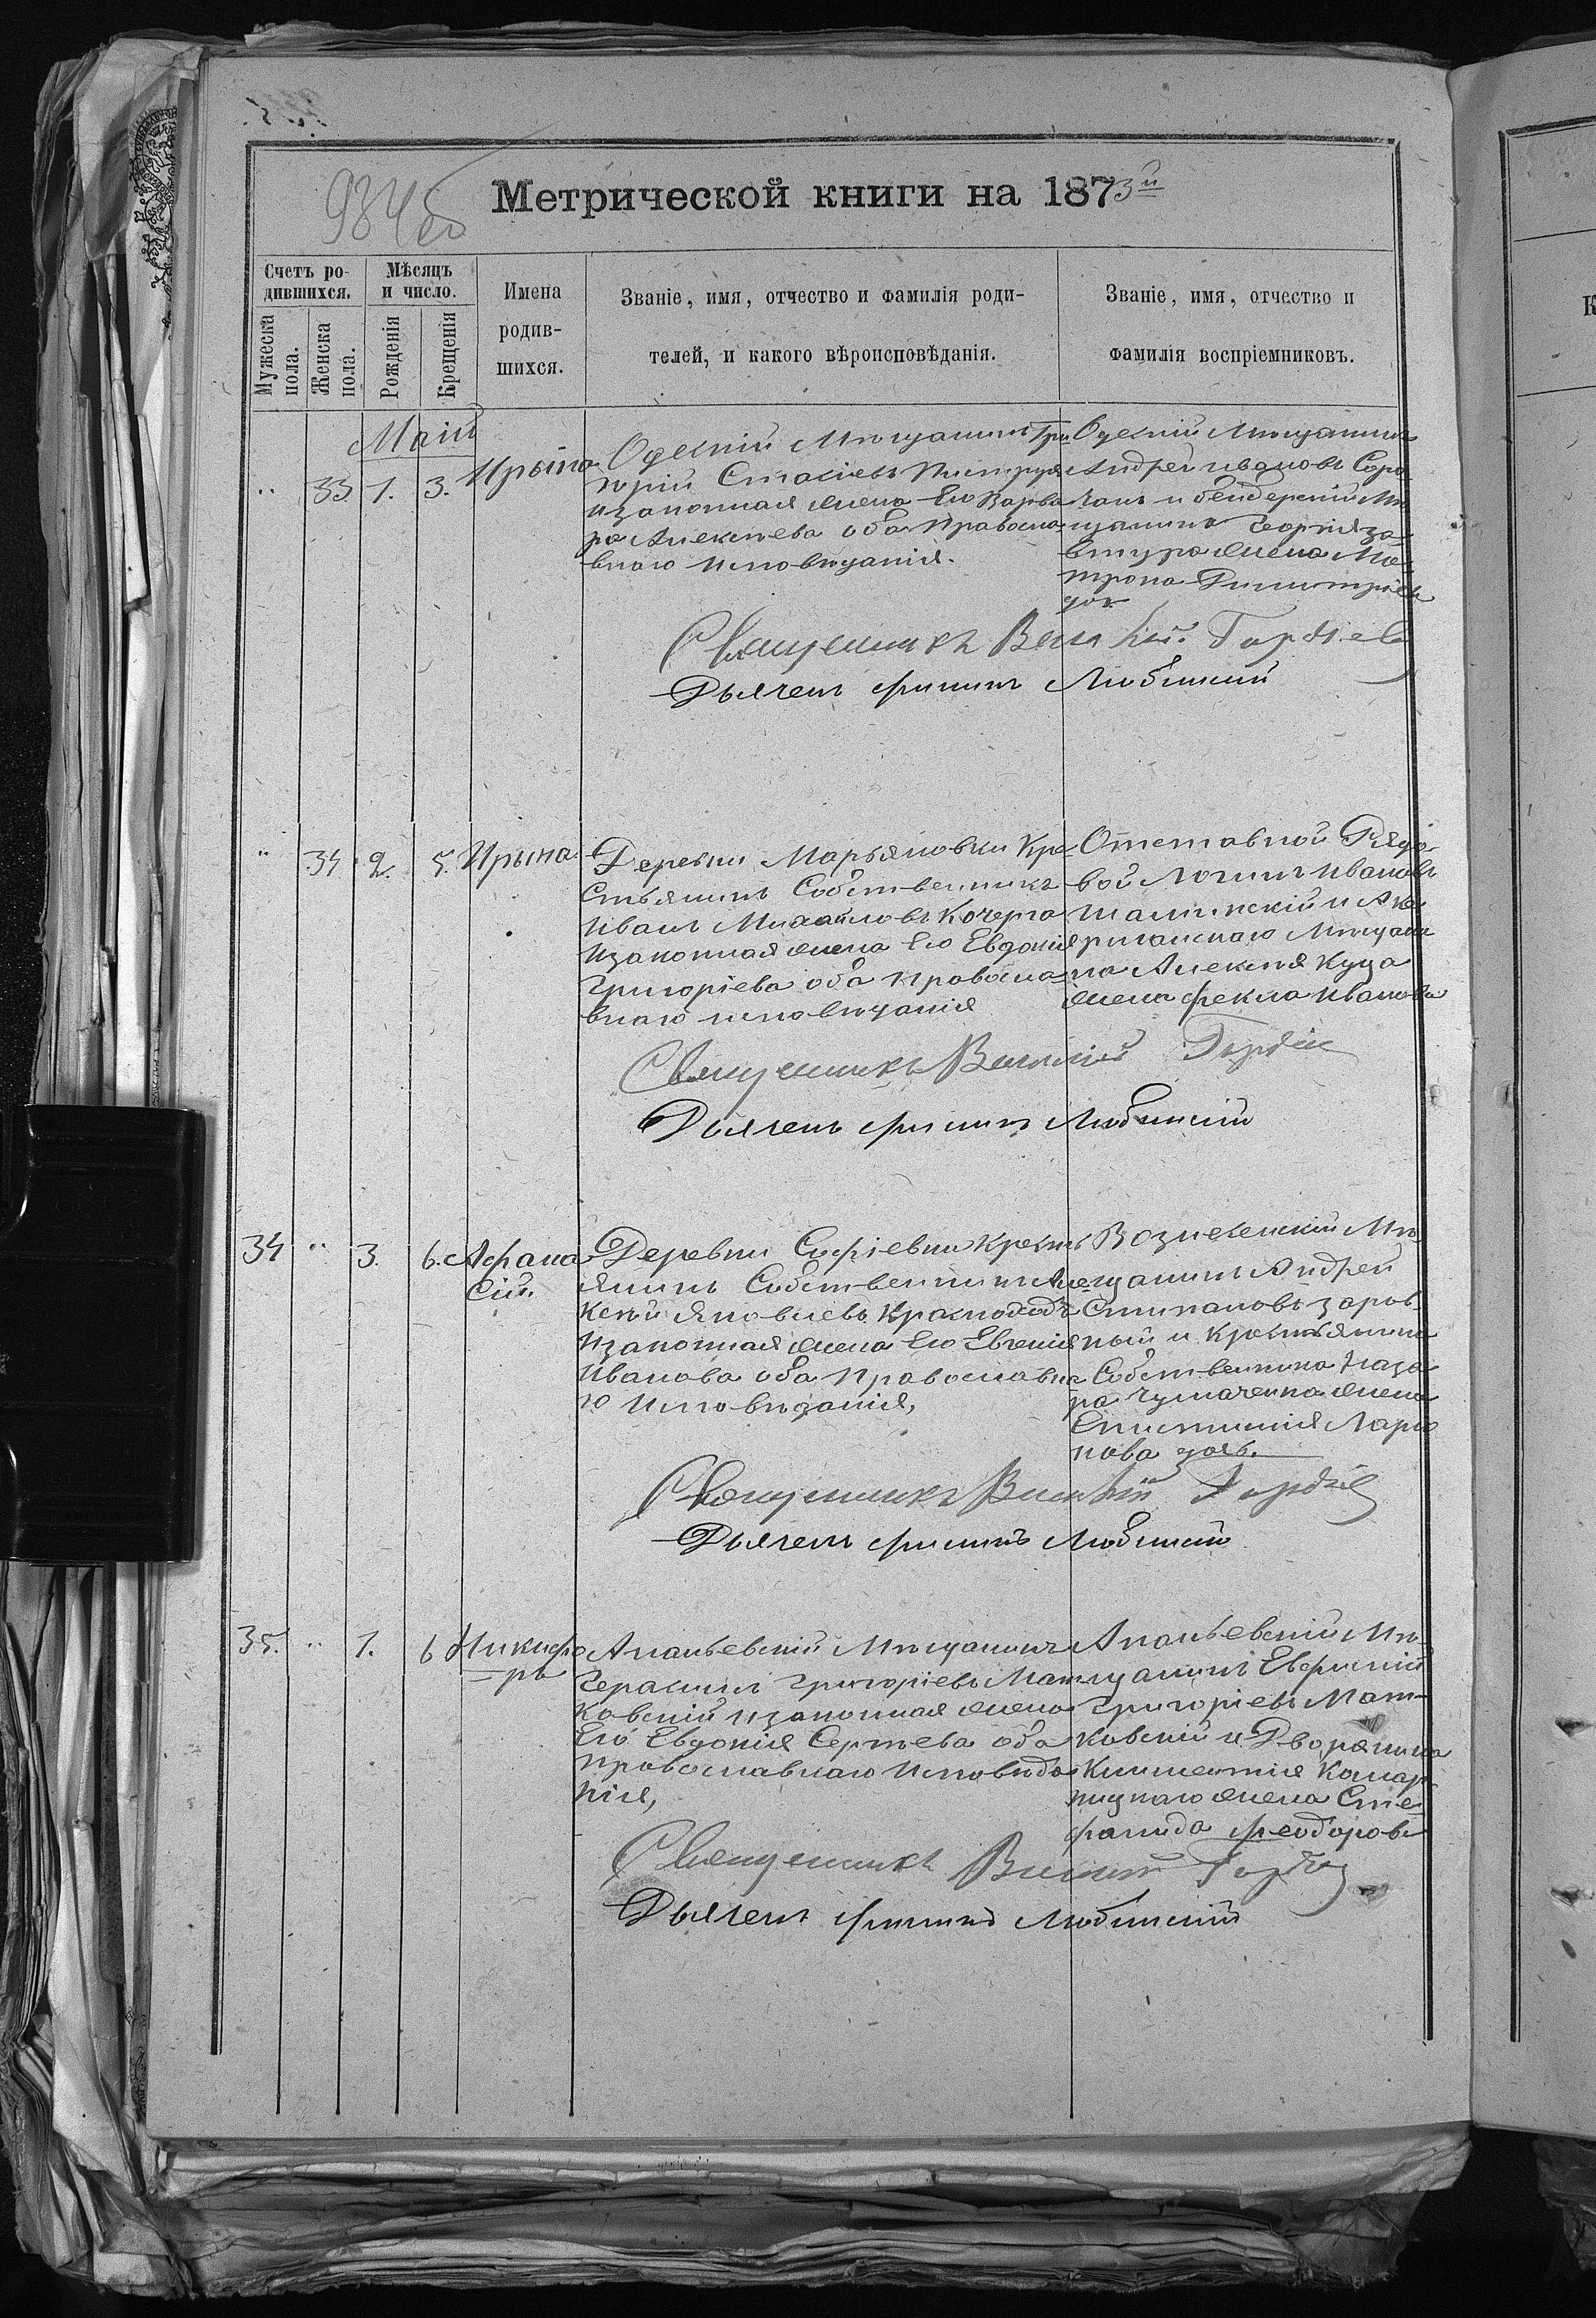 934 об
Метрической книги на 1873й
Счетъ ро-
дившихся.
Мужеска
пола.
Женска
пола.
Мѣсяцъ
и число.
Рожденія
Крещенія
Имена
родив-
шихся.
Званіе, имя, отчество и фамилія роди-
телей, и какого вѣроисповѣданія.
Званіе, имя, отчество и
фамилія воспріемниковъ.
Маій
" 33. 1. 3. Ирына
Одескій Мѣщанинъ Гри
горій Стасіевъ
изаконная жена Его Варва
ра Алексѣева оба Правосла
внаго Исповѣданія.
Одескій Мѣщанинъ
Андрей ивановъ
и бендерскій Мѣ
щанина Георгія за-
жена Ма
трона Димитріева
доч
Священникъ Василій Гордіев
Дьячекъ филипъ Любинскій
" 34 2. 5. Ирына
Деревни Марьяновки Кре
стьянинъ Собственникъ
Иванъ Михайловъ Кочерга
Изаконная жена Его Евдокія
Григоріева оба Правосла
внаго исповѣданія
Отставной Рядо-
вой Логинъ Ивановъ
и Ане
Мѣщани
на Алексѣя Куца
жена фекла Иванова
Священникъ Василій Гордіев
Дьячекъ филипъ Любинскій
34 " 3. 6. Афана
сій.
Деревни Софіевки Кресть
янинъ Собственникъ Але
ксѣй Яковлевъ
Изаконная жена Его Евгенія
Иванова оба Православна
го Исповѣданія,
Вознесенскій Мѣ
щанинъ Андрей
Стипановъ
и крестьянина
Собственника Наза
ра Чумаченка жена
Епистимія Ларіо
нова дочь.
Священникъ Василій Гордіев
Дьячекъ филипъ Любинскій
35. " 1. 6 Никифо
=ръ
Ананьевскій Мѣщанинъ
Герасимъ Григоріевъ Мат
ковскій изаконная жена
Его Евдокія Сергѣева оба
Православнаго Исповѣда
нія,
Ананьевскій Мѣ-
щанинъ Евфимій
Григоріевъ Мат-
ковскій и Дворянина
Климентія Комар
ницкаго жена Сте
фанида феодоров
Священникъ Василій Гордіев
Дьячекъ филипъ Любинскій